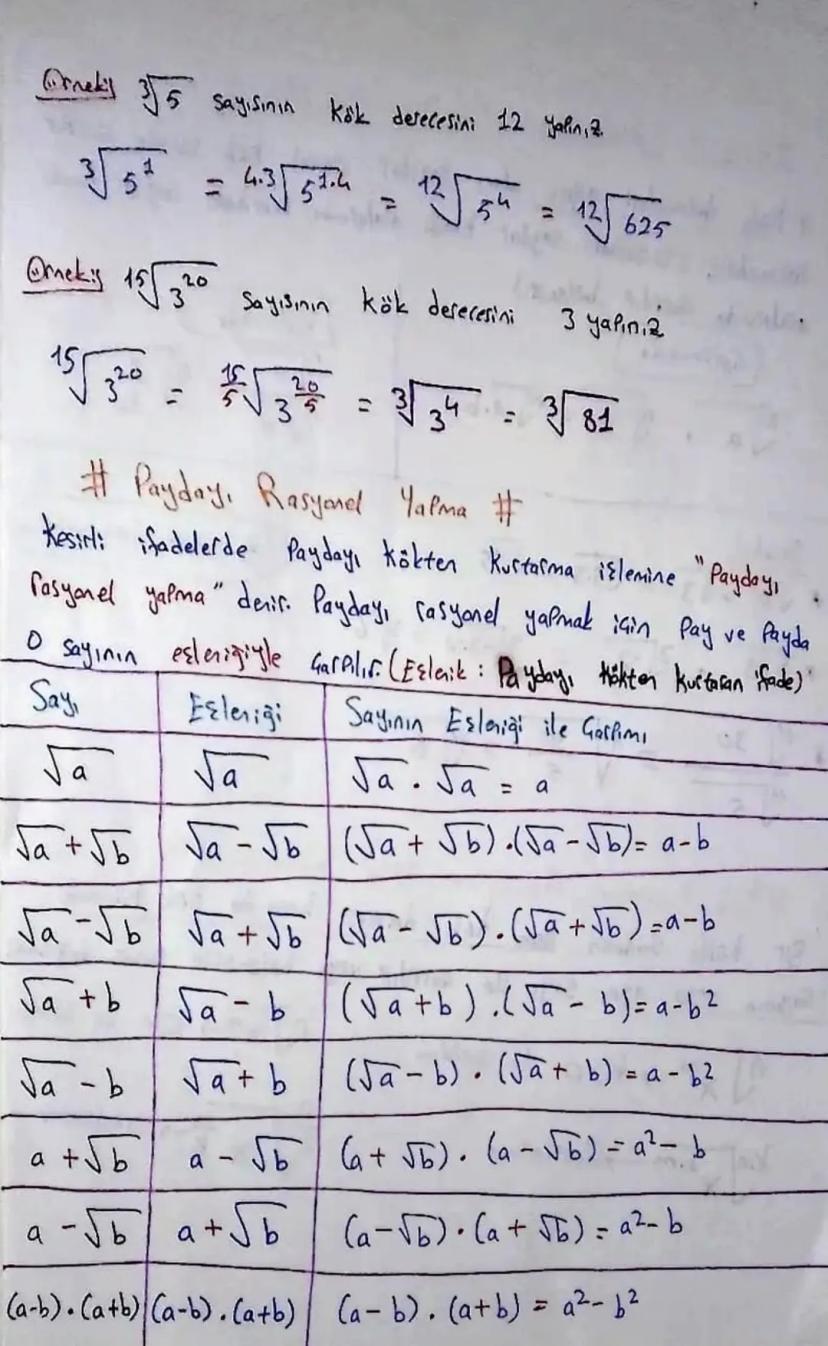 Örnek: ³√5 sayısının kök derecesini 12 yapınız.
³√5¹ = ⁴·³√5¹·⁴ = ¹²√5⁴ = ¹²√625
Örnek: ¹⁵√3²⁰ sayısının kök derecesini 3 yapınız
¹⁵√3²⁰ = ^(15/5)√3^(20/5) = ³√3⁴ = ³√81
# Paydayı Rasyonel Yapma #
Kesirli ifadelerde Paydayı kökten kurtarma işlemine "Paydayı
rasyonel yapma" denir. Paydayı rasyonel yapmak için Pay ve Payda
o sayının eşleniğiyle Çarpılır. (Eşlenik : Paydayı Kökten kurtaran ifade)
Sayı Eşleniği Sayının Eşleniği ile Çarpımı
√a √a √a . √a = a
√a + √b √a - √b (√a + √b) . (√a - √b) = a - b
√a - √b √a + √b (√a - √b) . (√a + √b) = a - b
√a + b √a - b (√a + b) . (√a - b) = a - b²
√a - b √a + b (√a - b) . (√a + b) = a - b²
a + √b a - √b (a + √b) . (a - √b) = a² - b
a - √b a + √b (a - √b) . (a + √b) = a² - b
(a-b) . (a+b) (a-b) . (a+b) (a - b) . (a+b) = a² - b²